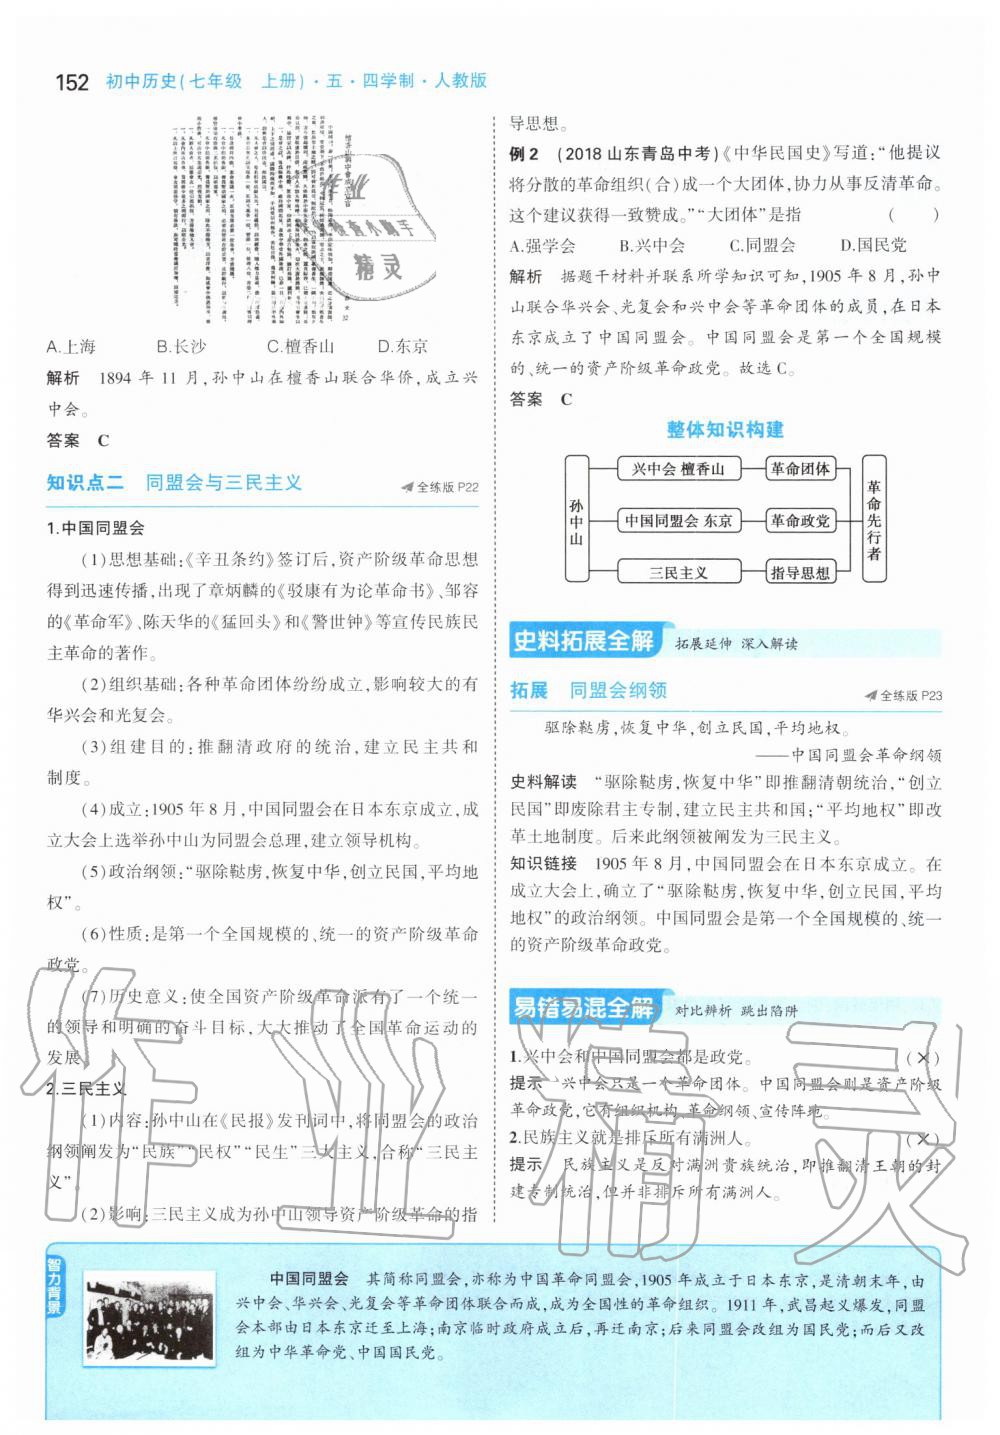 152 初中历史(七年级 上册)·五·四学制·人教版
A.上海 B.长沙 C.檀香山 D.东京
解析 1894 年 11 月,孙中山在檀香山联合华侨,成立兴
中会。
答案 C
知识点二 同盟会与三民主义 全练版 P22
1.中国同盟会
(1)思想基础:《辛丑条约》签订后,资产阶级革命思想
得到迅速传播,出现了章炳麟的《驳康有为论革命书》、邹容
的《革命军》、陈天华的《猛回头》和《警世钟》等宣传民族民
主革命的著作。
(2)组织基础:各种革命团体纷纷成立,影响较大的有
华兴会和光复会。
(3)组建目的:推翻清政府的统治,建立民主共和
制度。
(4)成立:1905 年 8 月,中国同盟会在日本东京成立,成
立大会上选举孙中山为同盟会总理,建立领导机构。
(5)政治纲领:“驱除鞑虏,恢复中华,创立民国,平均地
权”。
(6)性质:是第一个全国规模的、统一的资产阶级革命
政党。
(7)历史意义:使全国资产阶级革命派有了一个统一
的领导和明确的奋斗目标,大大推动了全国革命运动的
发展。
2.三民主义
(1)内容:孙中山在《民报》发刊词中,将同盟会的政治
纲领阐发为“民族”“民权”“民生”三大主义,合称“三民主
义”。
(2)影响:三民主义成为孙中山领导资产阶级革命的指
导思想。
例 2 (2018 山东青岛中考)《中华民国史》写道:“他提议
将分散的革命组织(合)成一个大团体,协力从事反清革命。
这个建议获得一致赞成。”“大团体”是指 ( )
A.强学会 B.兴中会 C.同盟会 D.国民党
解析 据题干材料并联系所学知识可知,1905 年 8 月,孙中
山联合华兴会、光复会和兴中会等革命团体的成员,在日本
东京成立了中国同盟会。中国同盟会是第一个全国规模
的、统一的资产阶级革命政党。故选 C。
答案 C
整体知识构建
孙中山
兴中会 檀香山 革命团体
中国同盟会 东京 革命政党
三民主义 指导思想
革命先行者
史料拓展全解 拓展延伸 深入解读
拓展 同盟会纲领 全练版 P23
驱除鞑虏,恢复中华,创立民国,平均地权。
——中国同盟会革命纲领
史料解读 “驱除鞑虏,恢复中华”即推翻清朝统治,“创立
民国”即废除君主专制,建立民主共和国;“平均地权”即改
革土地制度。后来此纲领被阐发为三民主义。
知识链接 1905 年 8 月,中国同盟会在日本东京成立。在
成立大会上,确立了“驱除鞑虏,恢复中华,创立民国,平均
地权”的政治纲领。中国同盟会是第一个全国规模的、统一
的资产阶级革命政党。
易错易混全解 对比辨析 跳出陷阱
1.兴中会和中国同盟会都是政党。 (×)
提示 兴中会只是一个革命团体。中国同盟会则是资产阶级
革命政党,它有组织机构、革命纲领、宣传阵地。
2.民族主义就是排斥所有满洲人。 (×)
提示 民族主义是反对满洲贵族统治,即推翻清王朝的封
建专制统治,但并非排斥所有满洲人。
智力背景
中国同盟会 其简称同盟会,亦称为中国革命同盟会,1905 年成立于日本东京,是清朝末年,由
兴中会、华兴会、光复会等革命团体联合而成,成为全国性的革命组织。1911 年,武昌起义爆发,同盟
会本部由日本东京迁至上海;南京临时政府成立后,再迁南京;后来同盟会改组为国民党;而后又改
组为中华革命党、中国国民党。
作业精灵